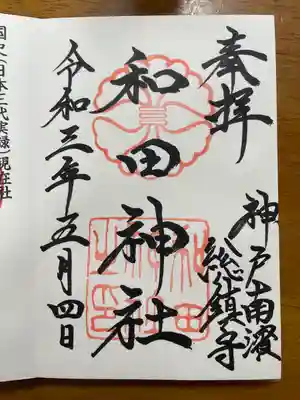 奉拝
神戸南濱
総鎮守
和田神社
令和三年五月四日
国史(日本三代実録)現在社